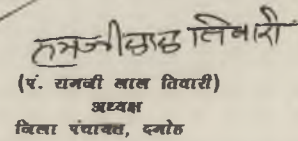 रामजीलाल तिवारी
(पं. रामजी लाल तिवारी)
अध्यक्ष
जिला पंचायत, दमोह